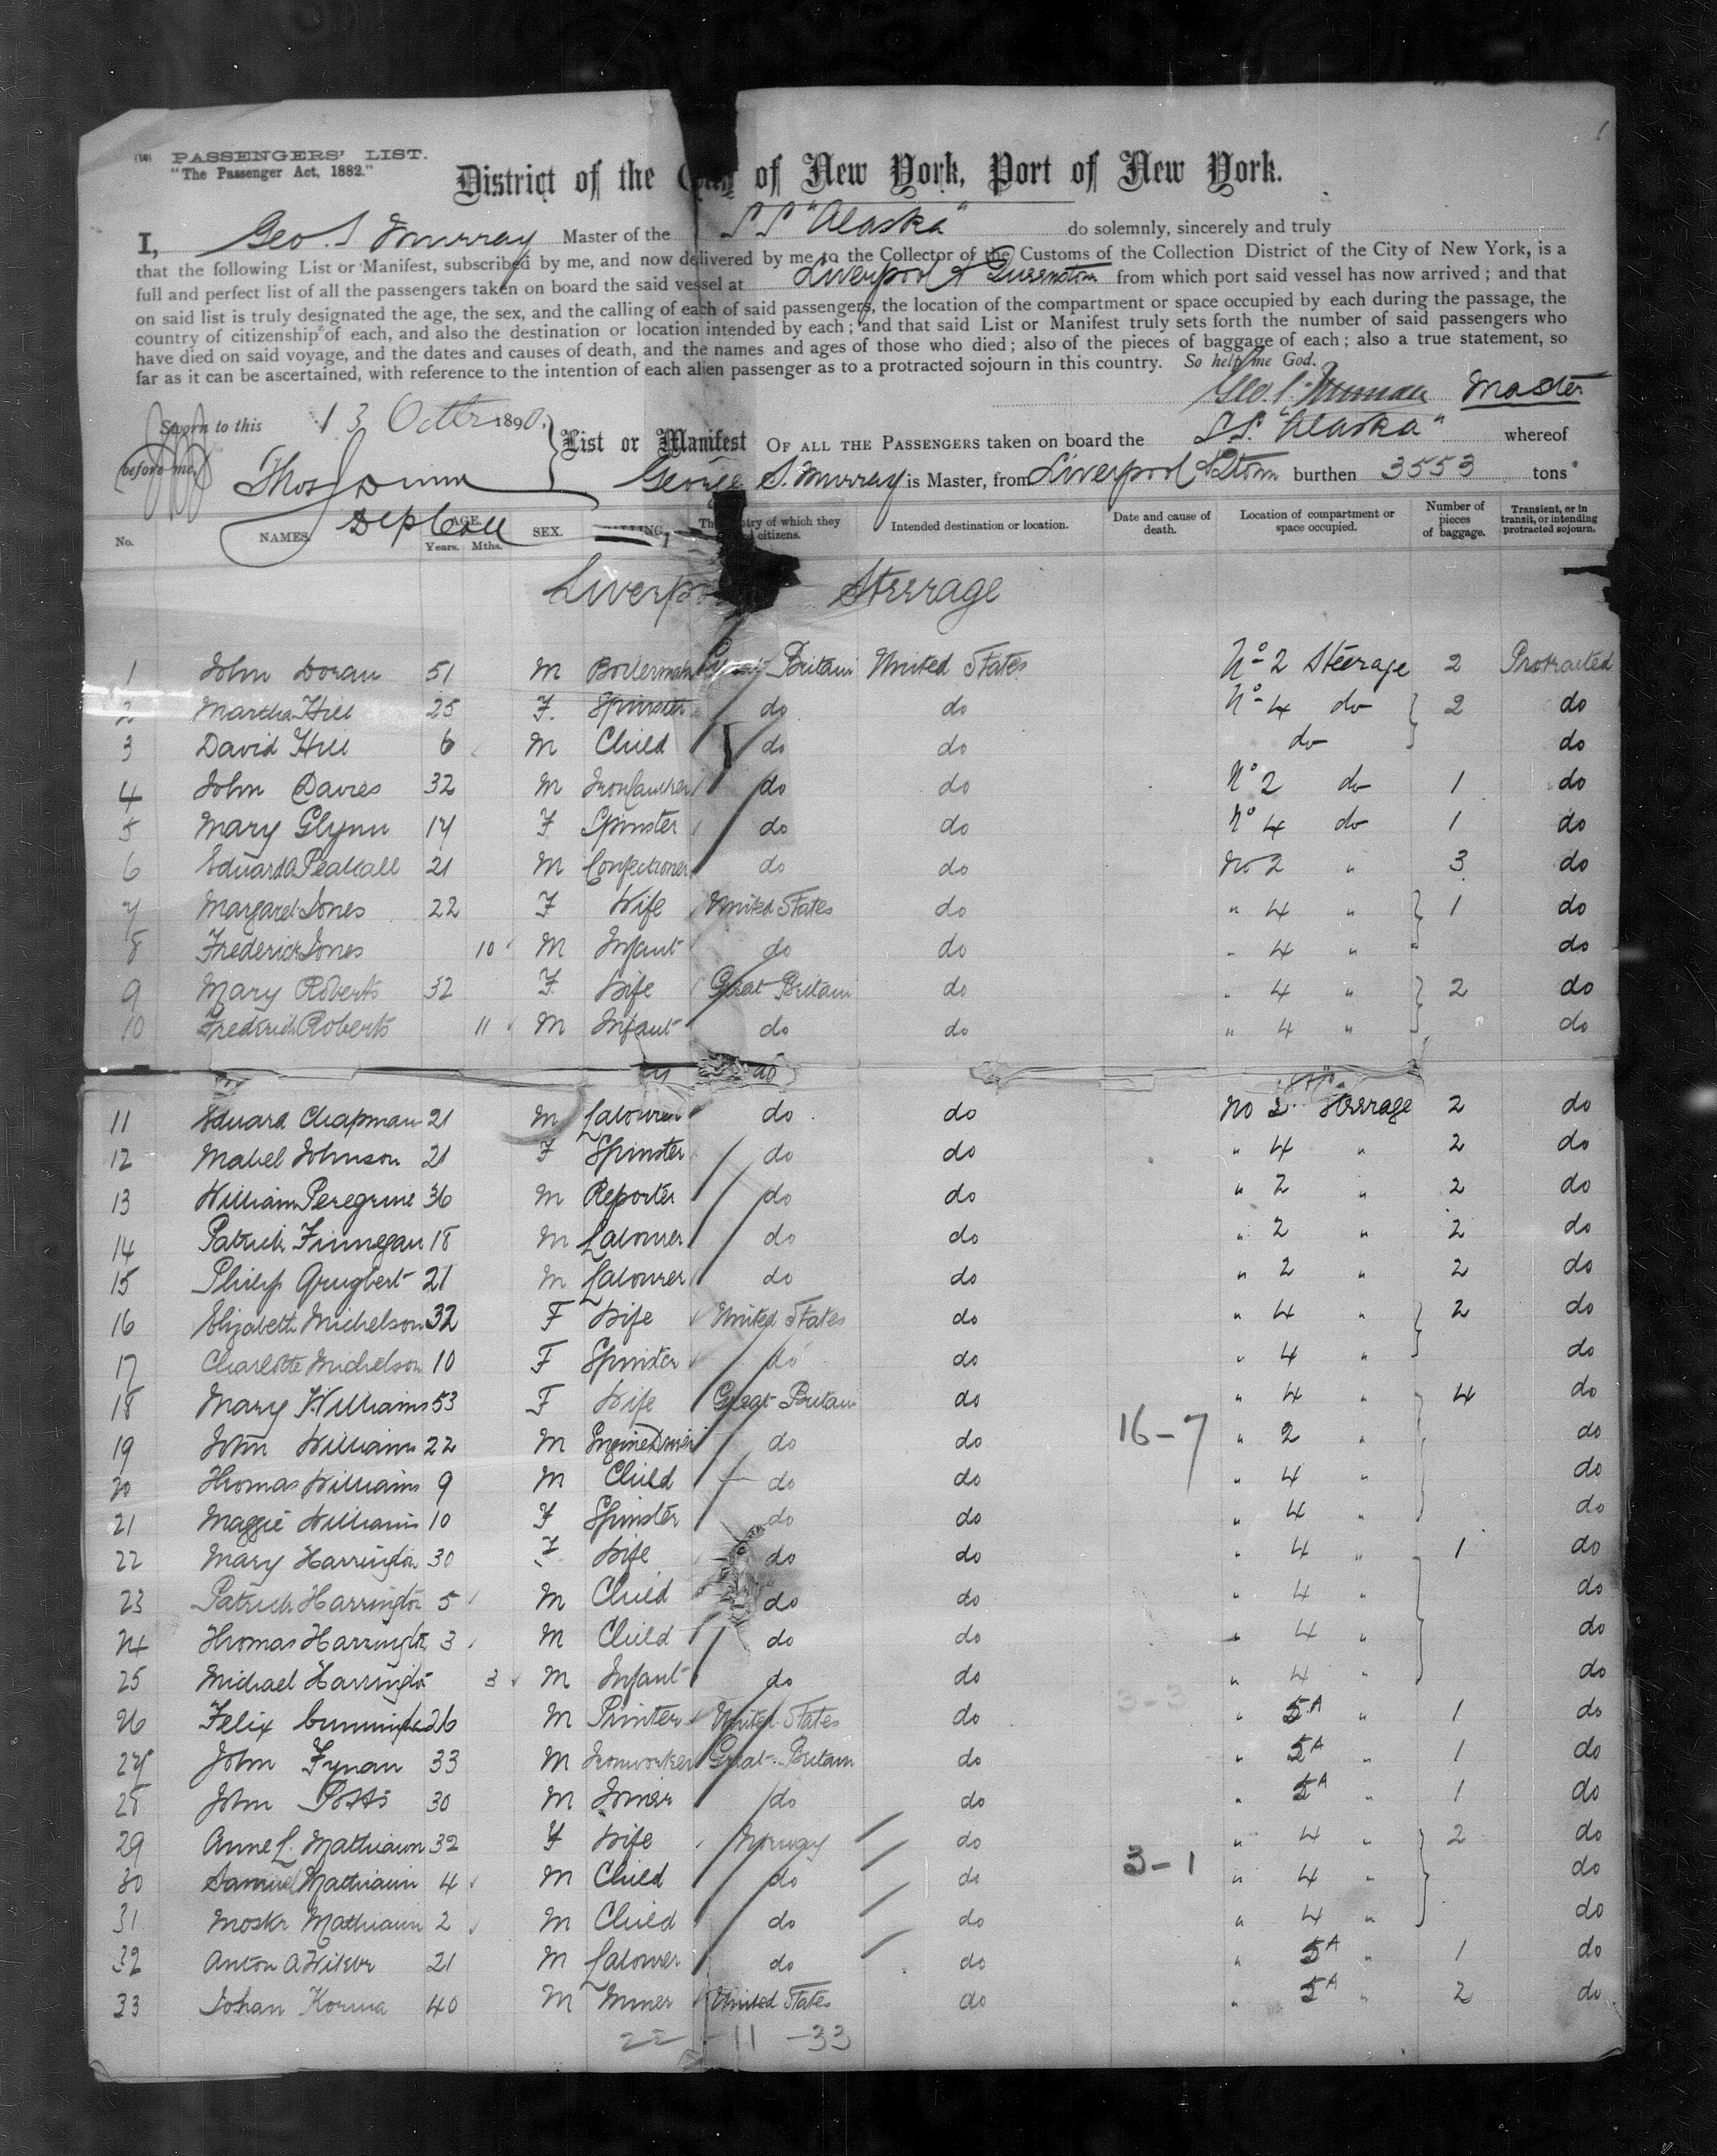 (16) PASSENGERS' LIST.
"The Passenger Act, 1882."
District of the City of New York, Port of New York.
I, Geo. S Murray Master of the S S "Alaska" do solemnly, sincerely and truly
that the following List or Manifest, subscribed by me, and now delivered by me to the Collector of the Customs of the Collection District of the City of New York, is a
full and perfect list of all the passengers taken on board the said vessel at Liverpool & Queenstown from which port said vessel has now arrived; and that
on said list is truly designated the age, the sex, and the calling of each of said passengers, the location of the compartment or space occupied by each during the passage, the
country of citizenship of each, and also the destination or location intended by each; and that said List or Manifest truly sets forth the number of said passengers who
have died on said voyage, and the dates and causes of death, and the names and ages of those who died; also of the pieces of baggage of each; also a true statement, so
far as it can be ascertained, with reference to the intention of each alien passenger as to a protracted sojourn in this country. So help me God.
Geo. S. Murray Master
Sworn to this 13 Octbr 1890.
before me
Thos Dunn
Dep Coll
List or Manifest OF ALL THE PASSENGERS taken on board the S.S. "Alaska" whereof
George S. Murray is Master, from Liverpool & Qtown burthen 3553 tons
No. NAMES. AGE. Years. Mths. SEX. CALLING. The country of which they are citizens. Intended destination or location. Date and cause of death. Location of compartment or space occupied. Number of pieces of baggage. Transient, or in transit, or intending protracted sojourn.
Liverpool Steerage
1 John Doran 51 M Boilerman Great Britain United States No 2 Steerage 2 Protracted
2 Martha Hill 25 F. Spinster do do No 4 do 2 do
3 David Hill 6 M Child do do do do
4 John Davies 32 M do do No 2 do 1 do
5 Mary Glynn 14 F Spinster do do No 4 do 1 do
6 Edward 21 M Confectioner do do No 2 " 3 do
7 Margaret Jones 22 F Wife United States do " 4 " 1 do
8 Frederick Jones 10 M Infant do do " 4 " do
9 Mary Roberts 32 F Wife Great Britain do " 4 " 2 do
10 Frederick Roberts 11 M Infant do do " 4 " do
11 Edward Chapman 21 M Labourer do do No 2 Steerage 2 do
12 Mabel Johnson 21 F Spinster do do " 4 " 2 do
13 William Peregrine 36 M Reporter do do " 2 " 2 do
14 Patrick Finnegan 18 M Labourer do do " 2 " 2 do
15 Philip 21 M Labourer do do " 2 " 2 do
16 Elizabeth Michelson 32 F Wife United States do " 4 " 2 do
17 Charlotte Michelson 10 F Spinster do do " 4 " do
18 Mary Williams 53 F Wife Great Britain do " 4 " 4 do
19 John Williams 22 M Engine Driver do do 16-7 " 2 " do
20 Thomas Williams 9 M Child do do " 4 " do
21 Maggie Williams 10 F Spinster do do " 4 " do
22 Mary Harrington 30 F Wife do do " 4 " 1 do
23 Patrick Harrington 5 M Child do do " 4 " do
24 Thomas Harrington 3 M Child do do " 4 " do
25 Michael Harrington 3 M Infant do do " 4 " do
3-3
26 Felix 26 M Printer United States do " 5A " 1 do
27 John Fynan 33 M Ironworker Great Britain do " 5A " 1 do
28 John Potts 30 M Joiner do do " 5A " 1 do
29 Anne L. 32 F Wife Norway do " 4 " 2 do
30 Samuel 4 M Child do do 3-1 " 4 " do
31 2 M Child do do " 4 " do
32 Anton A 21 M Labourer do do " 5A " 1 do
33 Johan 40 M Miner United States do " 5A " 2 do
22 - 11 - 33